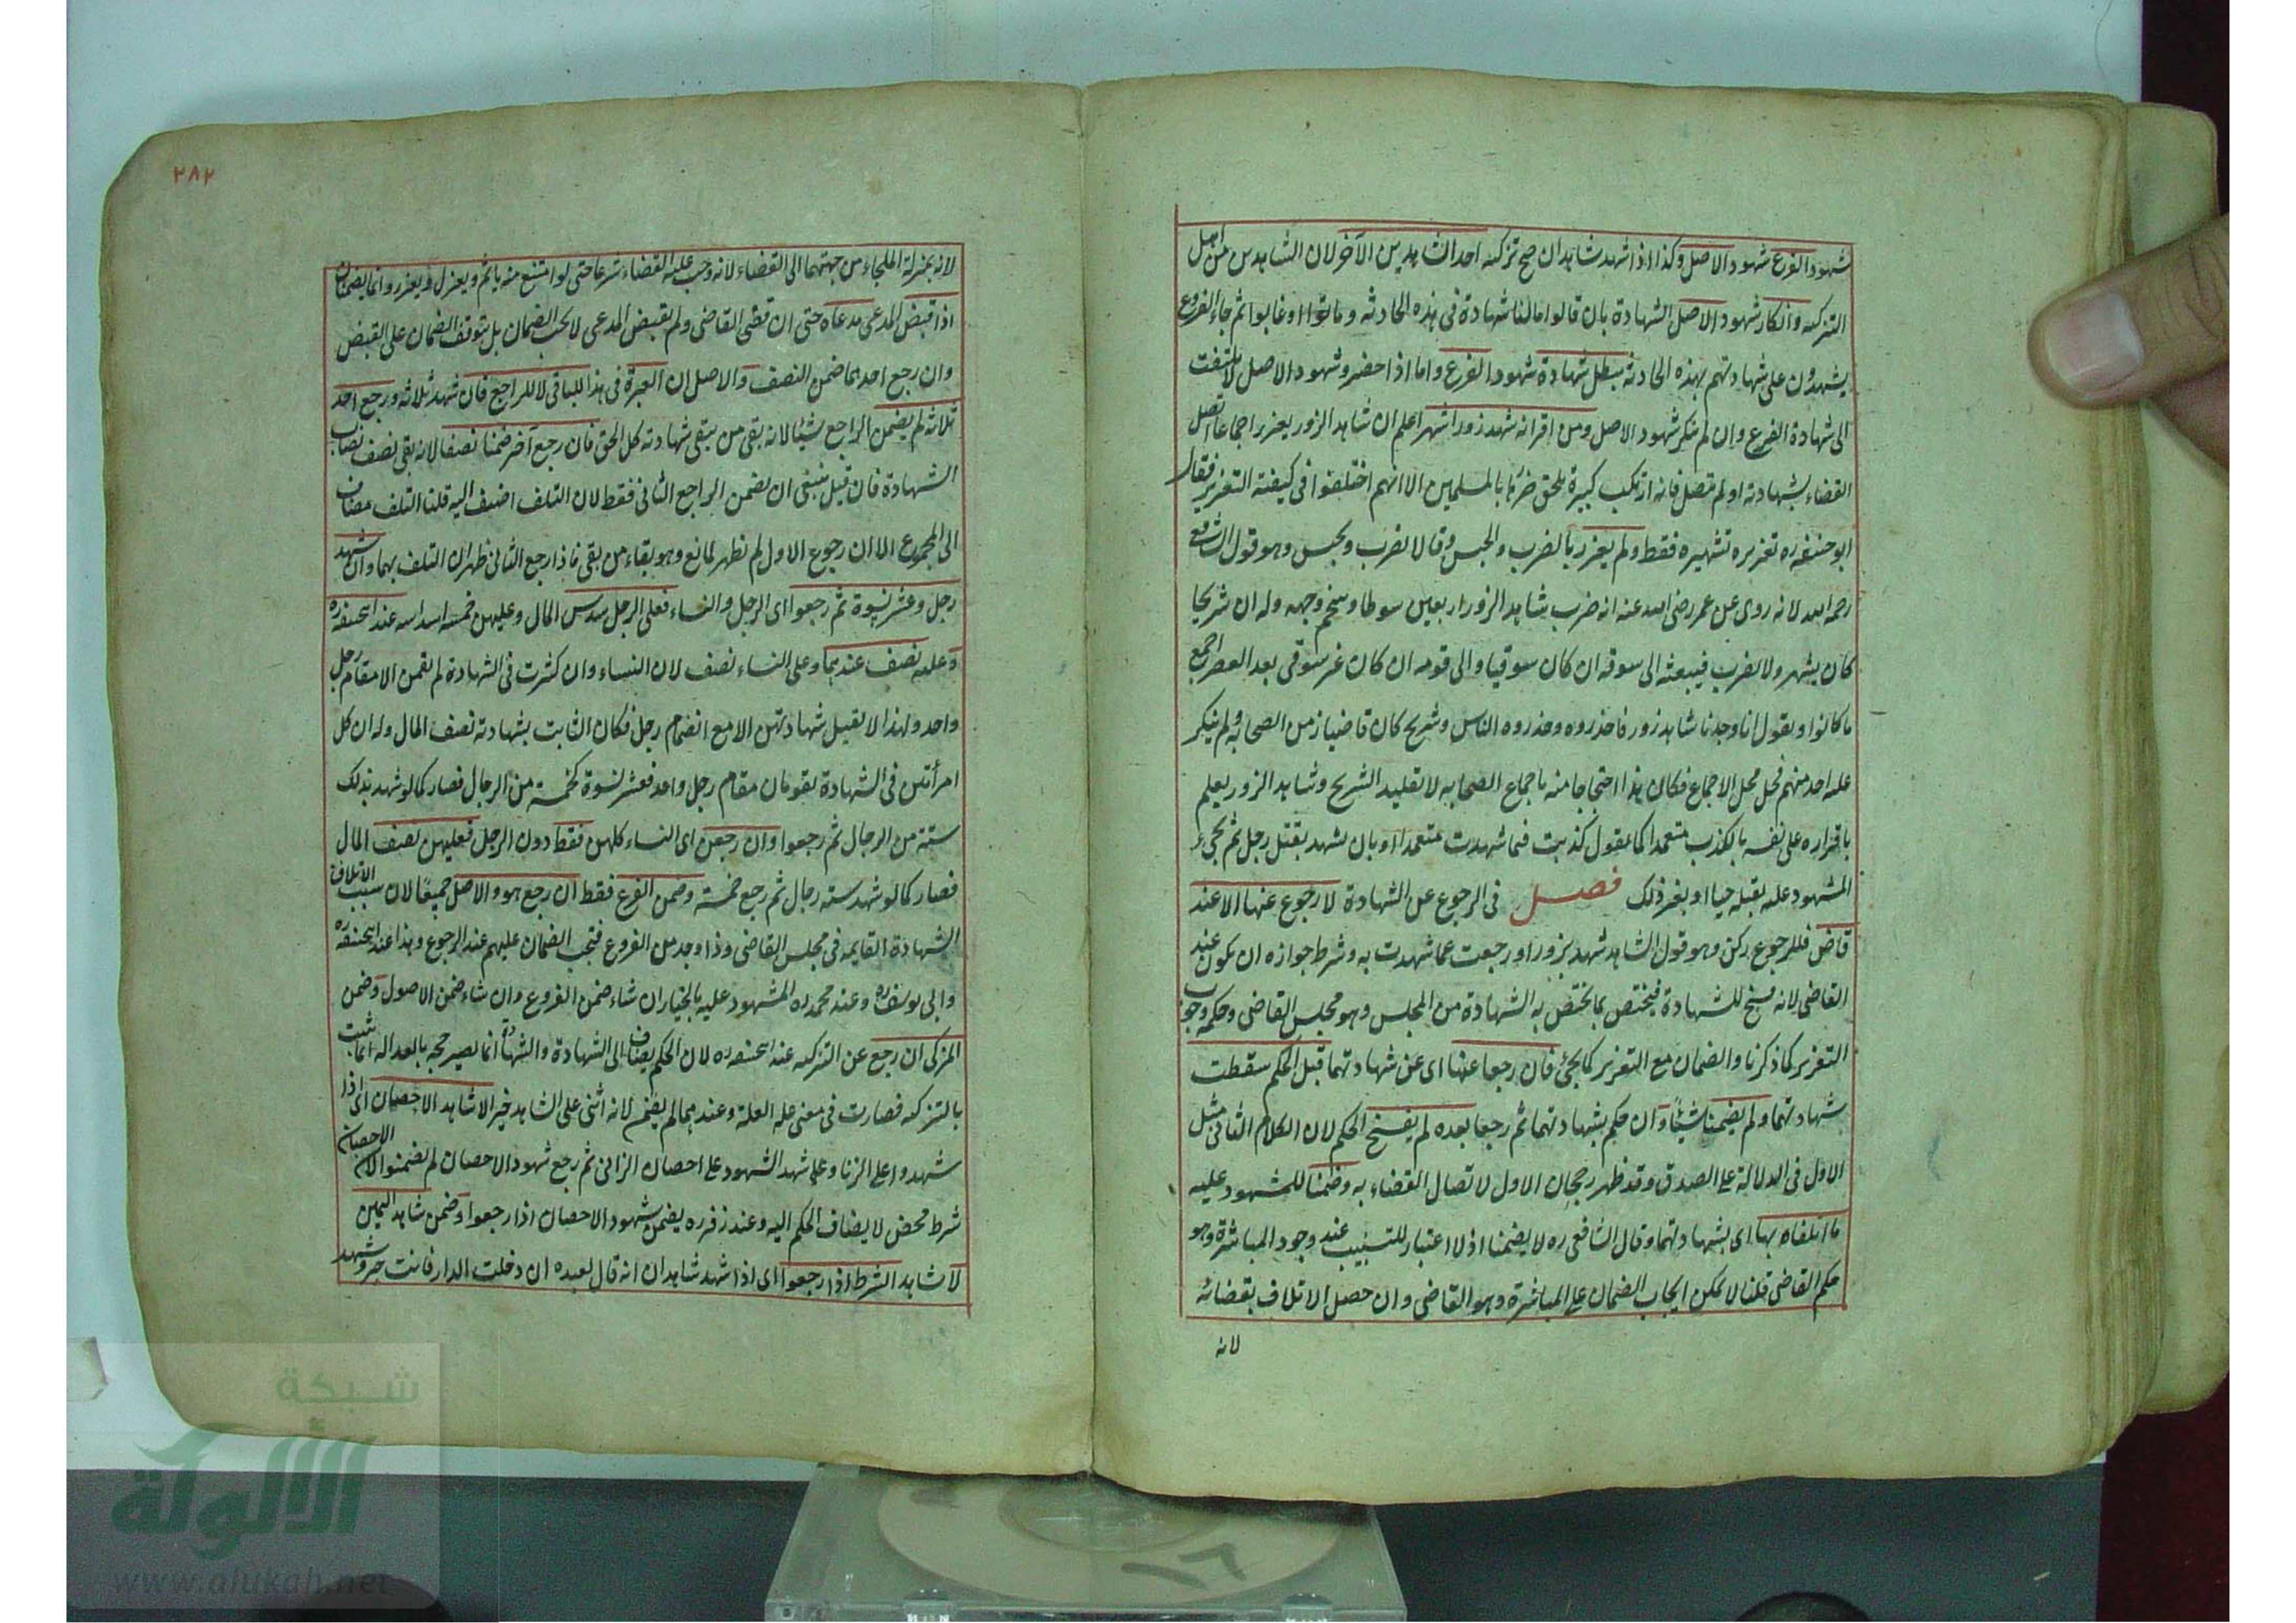 شهود الفرع شهود الاصل وكذا اذا شهد شاهدان صح تزكية احد الشاهدين الآخر لان الشاهدين من اهل
التزكية وانكار شهود الاصل الشهادة بان قالوا مالنا شهادة في هذه الحادثة وماتوا او غابوا ثم جاء الفروع
يشهدون على شهادتهم بهذه الحادثة يبطل شهادة شهود الفرع واما اذا حضر شهود الاصل لا يلتفت
الى شهادة الفرع وان لم ينكر شهود الاصل ومن اقر انه شهد زورا شهر اعلم ان شاهد الزور يعزر اجماعا اتصل
القضاء بشهادته او لم تتصل فانه ارتكب كبيرة يلحق ضررها بالمسلمين الا انهم اختلفوا في كيفية التعزير فقال
ابو حنيفة ره تعزيره تشهيره فقط ولم يعزر بالضرب والحبس وقالا يضرب ويحبس وهو قول الشافعي
رحمه الله لانه روى عن عمر رضي الله عنه انه ضرب شاهد الزور اربعين سوطا وسخم وجهه وله ان شريحا
كان يشهر ولا يضرب فيبعثه الى سوقه ان كان سوقيا والى قومه ان كان غير سوقي بعد العصر اجمع
ما كانوا ويقول انا وجدنا شاهد زور فاحذروه وحذروه الناس وشريح كان قاضيا زمن الصحابة ولم ينكر
عليه احد منهم فحل محل الاجماع فكان هذا احتجاجا منه باجماع الصحابة لا تقليد الشريح وشاهد الزور يعلم
باقراره على نفسه بالكذب متعمدا كما يقول كذبت فيما شهدت متعمدا او بان يشهد بقتل رجل ثم يجيء
المشهود عليه بقتله حيا او بغير ذلك فصل في الرجوع عن الشهادة لا رجوع عنها الا عند
قاض فللرجوع ركن وهو قول الشاهد شهد بزور او رجعت عما شهدت به وشرط جوازه ان يكون عند
القاضي لانه فسخ للشهادة فيختص بما يختص به الشهادة من المجلس وهو مجلس القاضي وحكمه وجوب
التعزير كما ذكرنا والضمان مع التعزير كما يجئ فان رجعا عنها اى عن شهادتهما قبل الحكم سقطت
شهادتهما ولم يضمنا شيئا وان حكم بشهادتهما ثم رجعا بعده لم يفسخ الحكم لان الكلام الثاني مثل
الاول في الدلالة على الصدق وقد ظهر رجحان الاول لاتصال القضاء به وضمنا للمشهود عليه
ما اتلفاه بها اى بشهادتهما وقال الشافعي ره لا يضمنا اذ لا اعتبار للتسبيب عند وجود المباشرة وهو
حكم القاضي قلنا لا يمكن ايجاب الضمان على المباشرة وهو القاضي وان حصل الاتلاف بقضائه
لانه
٢٨٢
لانه بمنزلة الملجاء من جهتهما الى القضاء لانه وجب عليه القضاء شرعا حتى لو امتنع منه ياثم ويعزل ويعزر وانما يضمنان
اذا قبض المدعى مدعاه حتى ان قضى القاضي ولم يقبض المدعى لا يجب الضمان بل يتوقف الضمان على القبض
وان رجع احدهما ضمن النصف والاصل ان العبرة في هذا للباقي لا للراجع فان شهد ثلاثة ورجع احد
ثلاثة لم يضمن الراجع شيئا لانه بقي من يبقى شهادته كل الحق فان رجع آخر ضمنا نصفا لانه بقي نصف نصاب
الشهادة فان قيل ينبغي ان يضمن الراجع الثاني فقط لان التلف اضيف اليه قلنا التلف مضاف
الى المجموع الا ان رجوع الاول لم يظهر لمانع وهو بقاء من بقي فاذا رجع الثاني ظهر ان التلف بهما وان شهد
رجل وعشر نسوة ثم رجعوا اى الرجل والنساء فعلى الرجل سدس المال وعليهن خمسة اسداسه عند ابيحنيفة ره
وعليه نصف عندهما وعلى النساء نصف لان النساء وان كثرت في الشهادة لم يقمن الا مقام رجل
واحد ولهذا لا يقبل شهادتهن الا مع انضمام رجل فكان الثابت بشهادته نصف المال وله ان كل
امرأتين في الشهادة يقومان مقام رجل واحد فعشر نسوة كخمسة من الرجال فصار كما لو شهد بذلك
ستة من الرجال ثم رجعوا وان رجعن اى النساء كلهن فقط دون الرجل فعليهن نصف المال
فصار كما لو شهد ستة رجال ثم رجع خمسة وضمن الفرع فقط ان رجع هو والاصل جميعا لان سبب الاتلاف
الشهادة القايمة في مجلس القاضي وذا وجد من الفروع فيجب الضمان عليهم عند الرجوع وهذا عند ابيحنيفة ره
وابي يوسف ره وعند محمد ره المشهود عليه بالخيار ان شاء ضمن الفروع وان شاء ضمن الاصول وضمن
المزكي ان رجع عن التزكية عند ابيحنيفة ره لان الحكم يضاف الى الشهادة والشهادة انما يصير حجة بالعدالة انما تثبت
بالتزكية فصارت في معنى علة العلة وعندهما لم يضمن لانه اثنى على الشاهد خيرا لا شاهد الاحصان اى اذا
شهدوا على الزنا وعلى شهد الشهود على احصان الزاني ثم رجع شهود الاحصان لم يضمنوا لان الاحصان
شرط محض لا يضاف الحكم اليه وعند زفر ره يضمن شهود الاحصان اذا رجعوا وضمن شاهد اليمين
لا شاهد الشرط اذا رجعوا اى اذا شهد شاهدان انه قال لعبده ان دخلت الدار فانت حر وشهد
شبكة
الألوكة
www.alukah.net
١٦